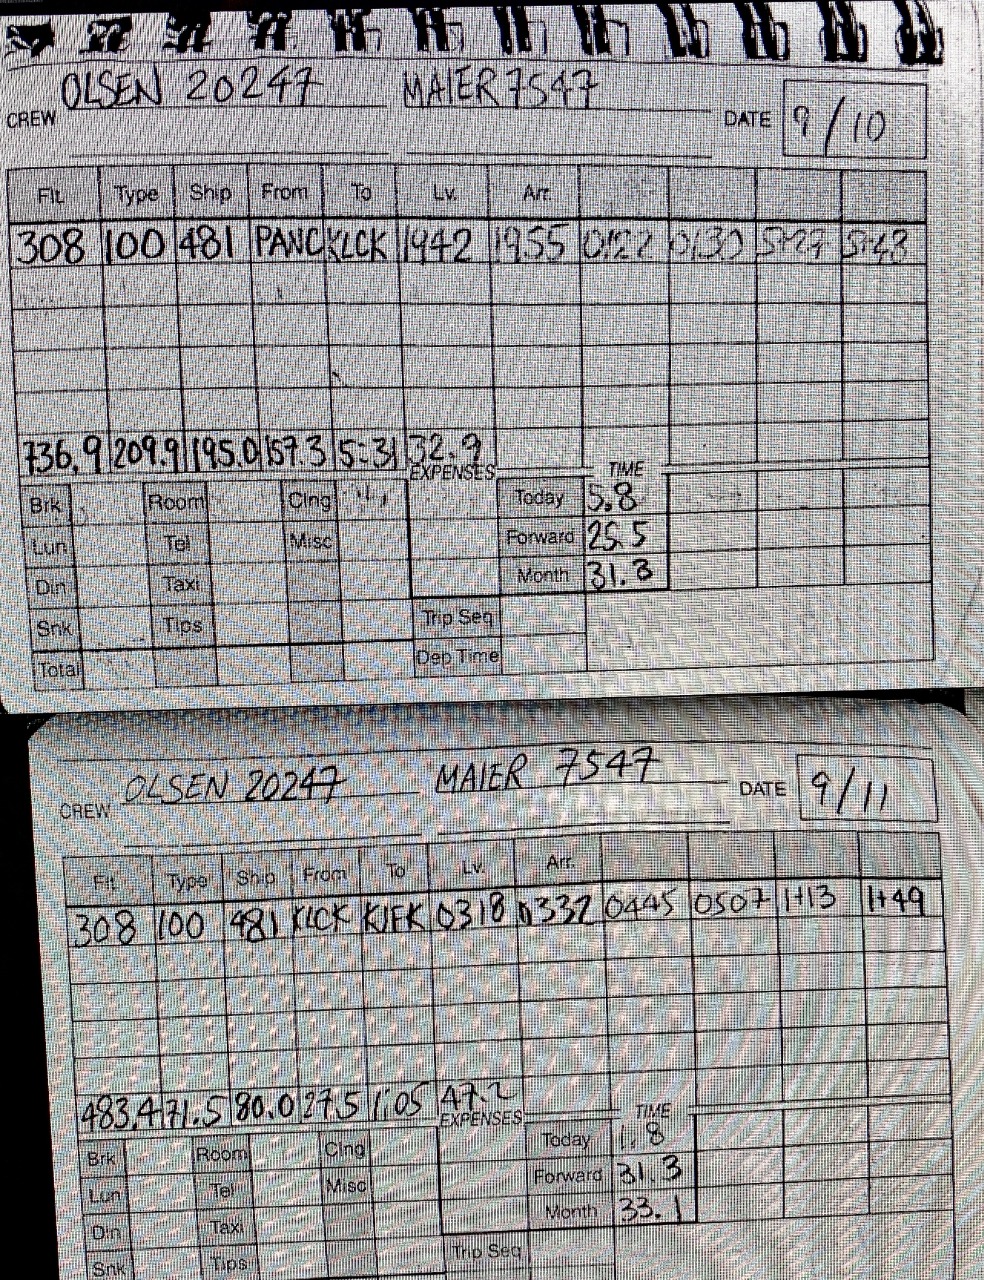 OLSEN 20247 MAIER 7547
CREW DATE 9/10
Flt. Type Ship From To Lv. Arr.
308 100 481 PANC KLCK 1942 1955 0122 0130 5+27 5+48
736.9 209.9 195.0 157.3 5:31 32.9
EXPENSES TIME
Brk Room Clng Today 5.8
Lun Tel Misc Forward 25.5
Din Taxi Month 31.3
Snk Tips Trip Seq
Total Dep Time
OLSEN 20247 MAIER 7547
CREW DATE 9/11
Flt. Type Ship From To Lv. Arr.
308 100 481 KLCK KJFK 0318 0332 0445 0507 1+13 1+49
483.4 71.5 80.0 27.5 1:05 47.2
EXPENSES TIME
Brk Room Clng Today 1.8
Lun Tel Misc Forward 31.3
Din Taxi Month 33.1
Snk Tips Trip Seq